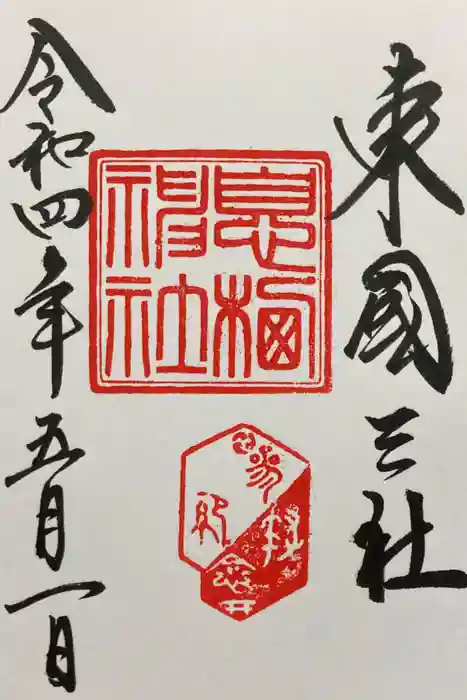 東國三社
息栖
神社
參拜
記念
令和四年五月一日